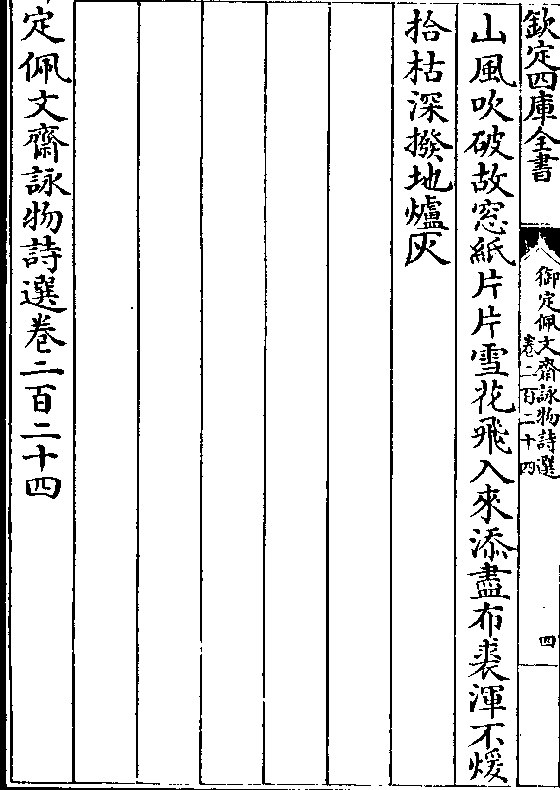 欽定四庫全書
御定佩文齋詠物詩選
卷二百二十四
四
山風吹破故窓紙片片雪花飛入來添盡布裘渾不煖
拾枯深撥地爐灰
定佩文齋詠物詩選卷二百二十四